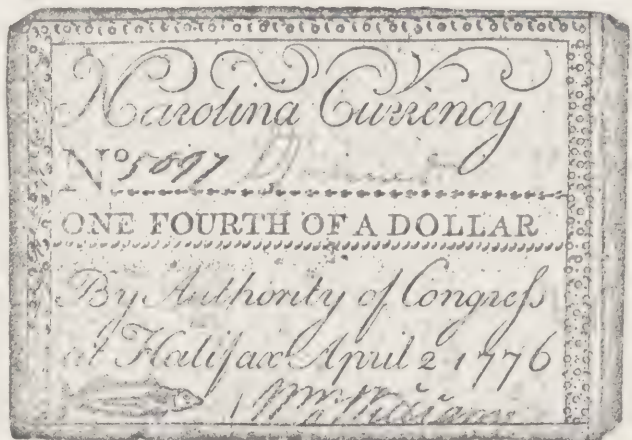 N Carolina Currency
No 5897
ONE FOURTH OF A DOLLAR
By Authority of Congress
at Halifax April 2 1776
Wm Williams